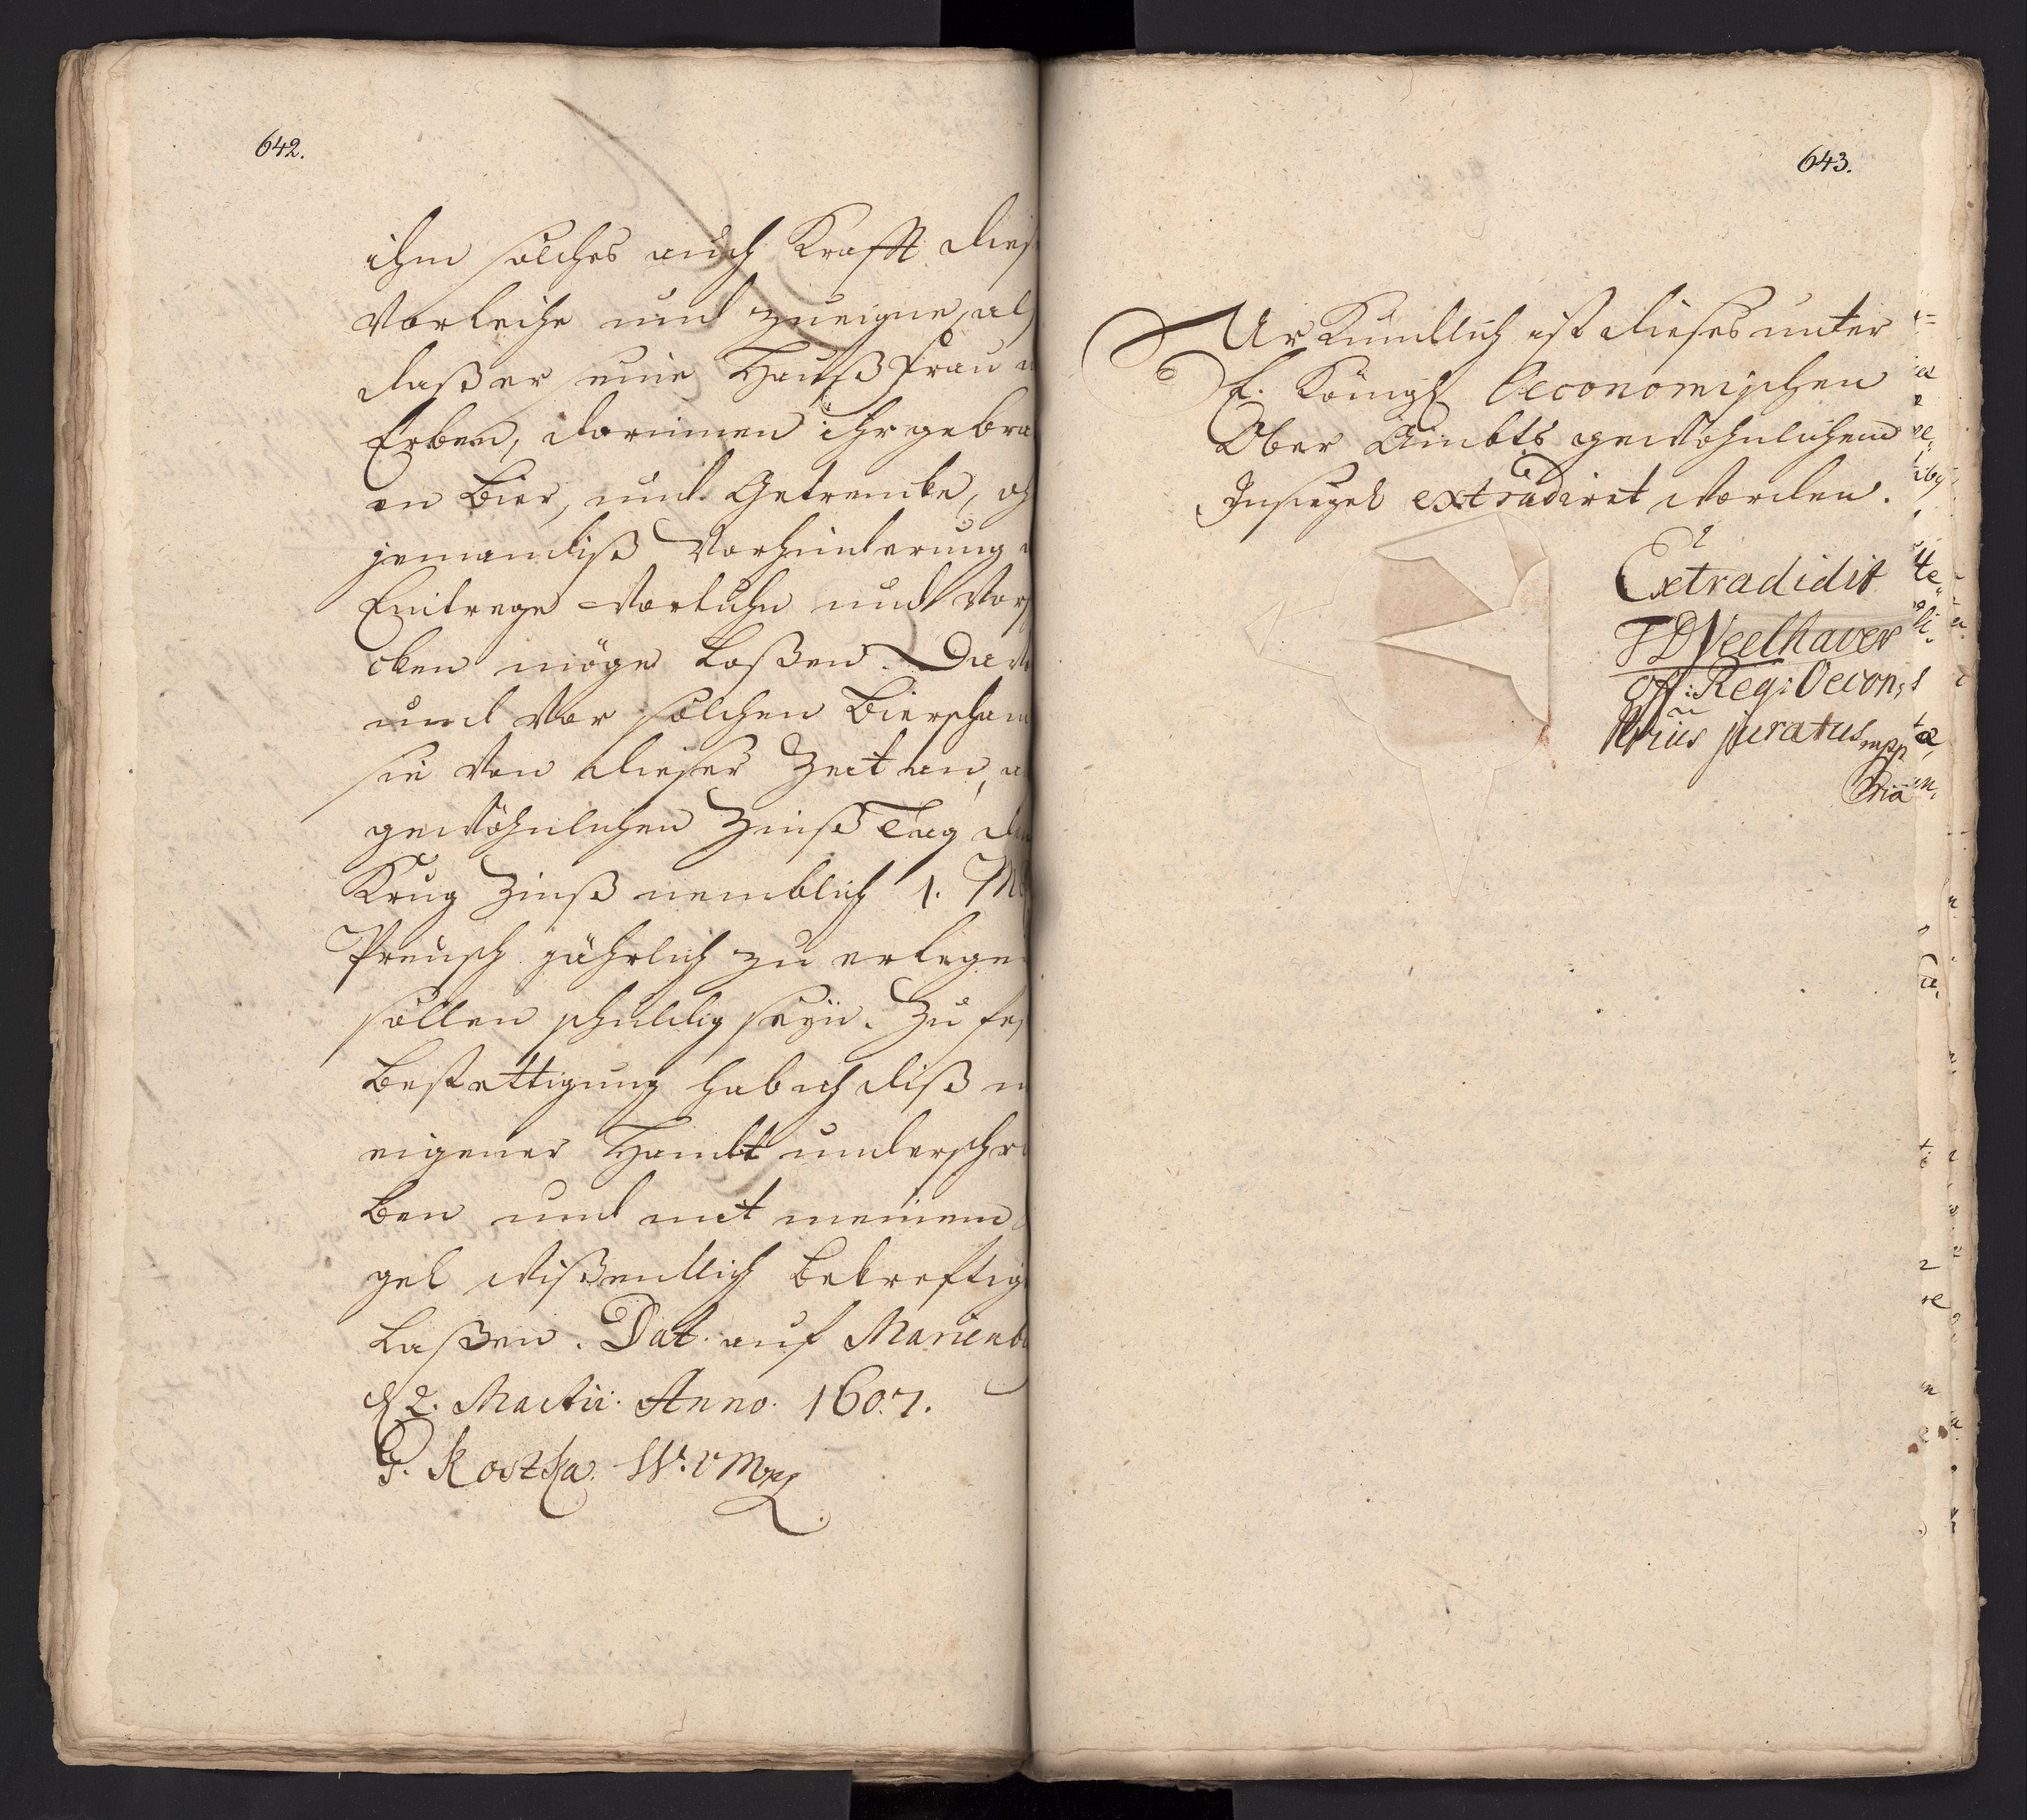 642.
ihm solches auch Krafft dies
Vorleihe und zueigne, als
daß er seine Haußfrau u
Erben, darinnen ihr gebra
en Bier, und Getrencke, oh
jemandtß Vorhinderung
Eintrege Vorkuhn und Vors
cken möge laßen. Da
und Vor solchen Bierschan
sie Von dieser Zeit an, a
gewöhnlichen Zinß Tag den
Krug Zinß nemblich 1. M
Preusch jährlich zu erlegen
sollen schuldig seÿn. Zu fes
bestettigung hab ich diß m
eigener Handt underschri
ben und mit meinem
gel wißendtlich bekreftig
laßen. Dat. auf Marienb
d 2. Martii. Anno. 1607.
P. Kostka. W. v M
643.
Uhrkundlich ist dieses unter
E. Königl Oeconomischen
Ober Ambts gewöhnlichem
Insiegel extradiret worden.
Extradidit
Veelhaver
Off: Reg: Oecon:
Nrius juratus mpp
pria